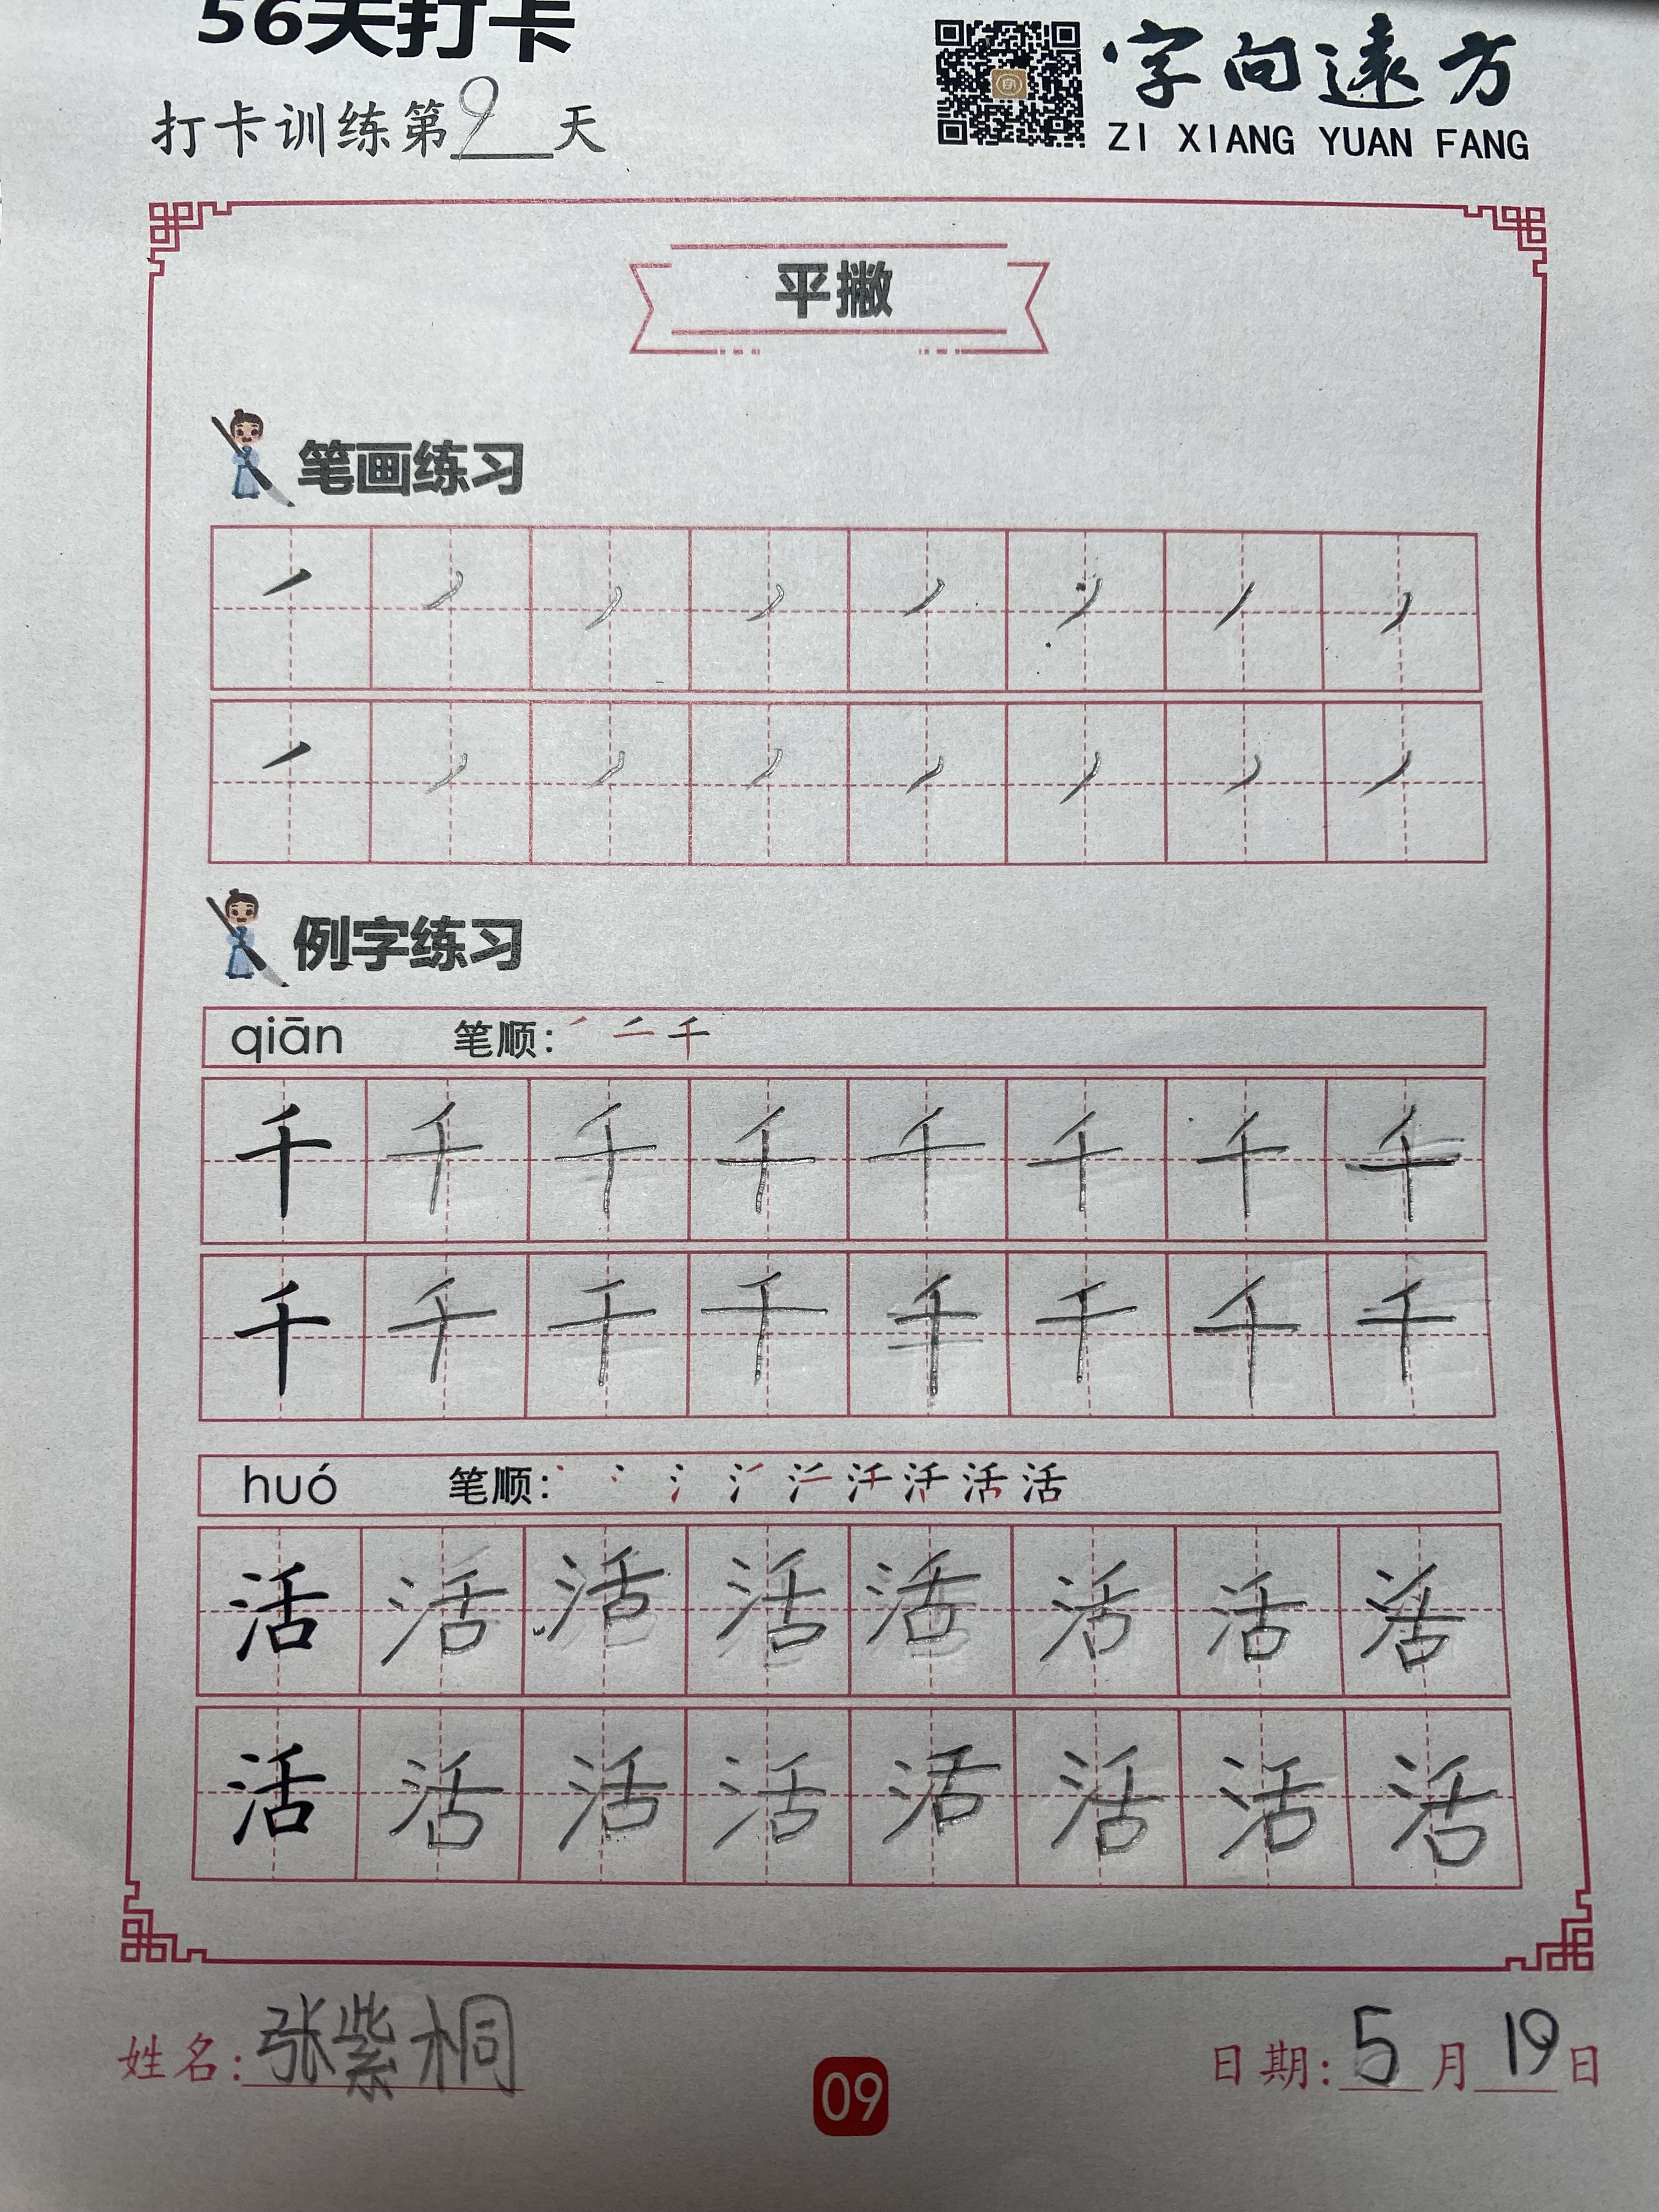 56天打卡
打卡训练第9天
字向遠方
ZI XIANG YUAN FANG
平撇
笔画练习
㇒ ㇒ ㇒ ㇒ ㇒ ㇒ ㇒ ㇒
㇒ ㇒ ㇒ ㇒ ㇒ ㇒ ㇒ ㇒
例字练习
qiān 笔顺: ㇒ 二 千
千 千 千 千 千 千 千 千
千 千 千 千 千 千 千 千
huó 笔顺: 活
活 活 活 活 活 活 活 活
活 活 活 活 活 活 活 活
姓名:张紫桐
09
日期:5月19日